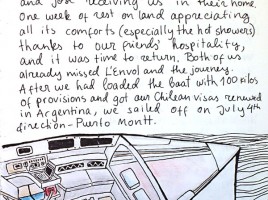 and José receiving us in their home.
One week of rest on land appreciating
all its comforts (especially the hot showers)
thanks to our friends' hospitality,
and it was time to return. Both of us
already missed L'Envol and the journey.
After we had loaded the boat with 100 kilos
of provisions and got our Chilean visas renewed
in Argentina, we sailed off on July 4th
direction - Puerto Montt.